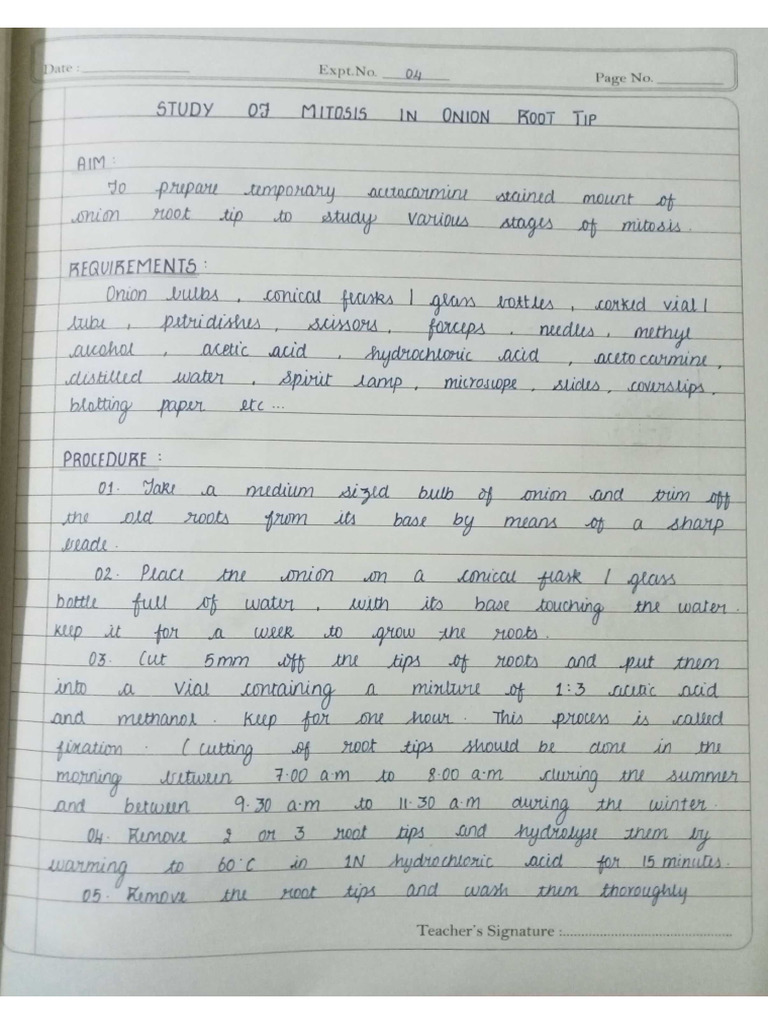 Date : Expt.No. 04 Page No.
STUDY OF MITOSIS IN ONION ROOT TIP
AIM :
To prepare temporary acetocarmine stained mount of
onion root tip to study various stages of mitosis.
REQUIREMENTS :
Onion bulbs, conical flasks / glass bottles, corked vial /
tube, petridishes, scissors, forceps, needles, methyl
alcohol, acetic acid, hydrochloric acid, aceto carmine,
distilled water, spirit lamp, microscope, slides, coverslips,
blotting paper etc...
PROCEDURE :
01. Take a medium sized bulb of onion and trim off
the old roots from its base by means of a sharp
blade.
02. Place the onion on a conical flask / glass
bottle full of water, with its base touching the water.
keep it for a week to grow the roots.
03. Cut 5mm off the tips of roots and put them
into a vial containing a mixture of 1:3 acetic acid
and methanol. Keep for one hour. This process is called
fixation. (cutting of root tips should be done in the
morning between 7.00 a.m to 8.00 a.m during the summer
and between 9.30 a.m to 11.30 a.m during the winter.
04. Remove 2 or 3 root tips and hydrolyse them by
warming to 60°C in 1N hydrochloric acid for 15 minutes.
05. Remove the root tips and wash them thoroughly
Teacher's Signature :